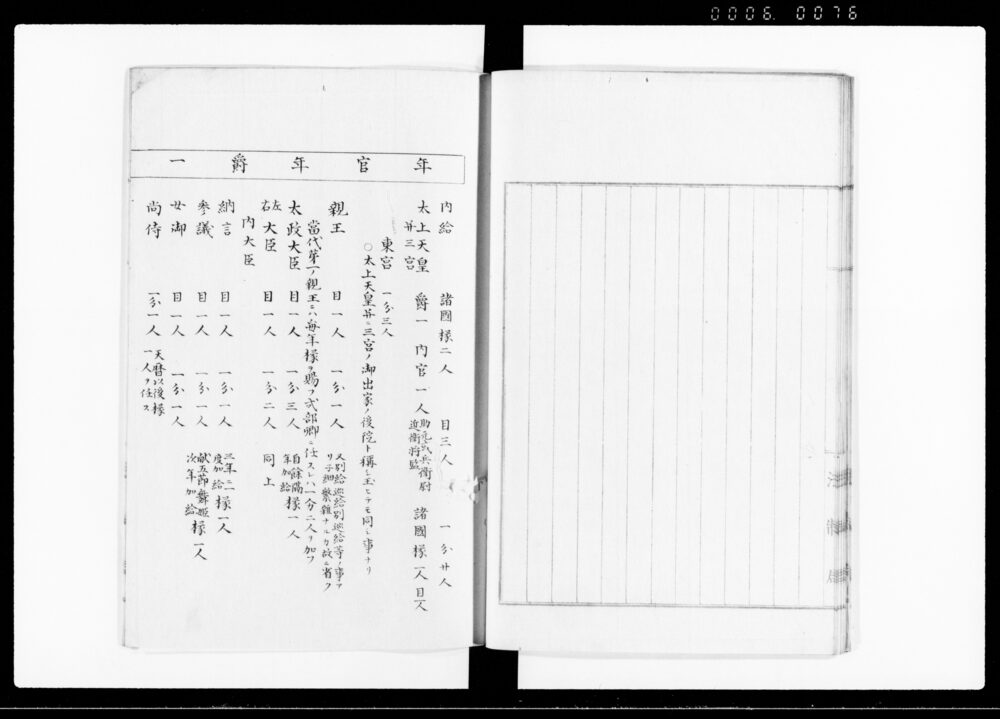 0006.0076
年官年爵一
内給 諸國掾二人 目三人 一分廿人
太上天皇 爵一 内官一人 諸國掾一人目一人
幷三宮
近衛将監
東宮 一分三人
○太上天皇幷ニ三宮ノ御出家ノ後院ト稱シ玉ヒテモ同シ事ナリ
親王 目一人 一分一人
又別給巡給別巡給等ノ事ア
リ子細繁雜ナルカ故ニ省ク
當代第一ノ親王ニハ毎年掾ヲ賜フ式部卿ニ任スレハ一分二人ヲ加フ
太政大臣 目一人 一分三人 掾一人
年加給
左右大臣 目一人 一分二人 同上
内大臣
納言 目一人 一分一人 三年ニ一度加給掾一人
參議 目一人 一分一人 献五節舞姫次年加給掾一人
女御 目一人 一分一人
尚侍 一分一人 天曆以後掾一人ヲ任ス